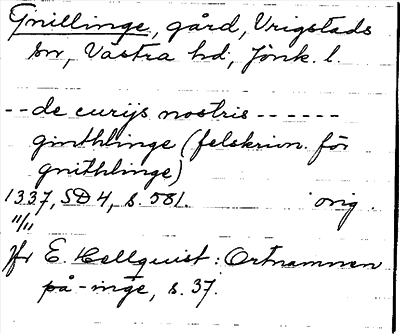 Gnillinge, gård, Vrigstads
sn, Västra hd, Jönk. l.
-- de curijs nostris ------
ginthlinge (felskrivn. för
gnithlinge)
1337, SD 4, s. 581. orig.
11/11
Jfr E. Hellquist: Ortnamnen
på -inge, s. 37.